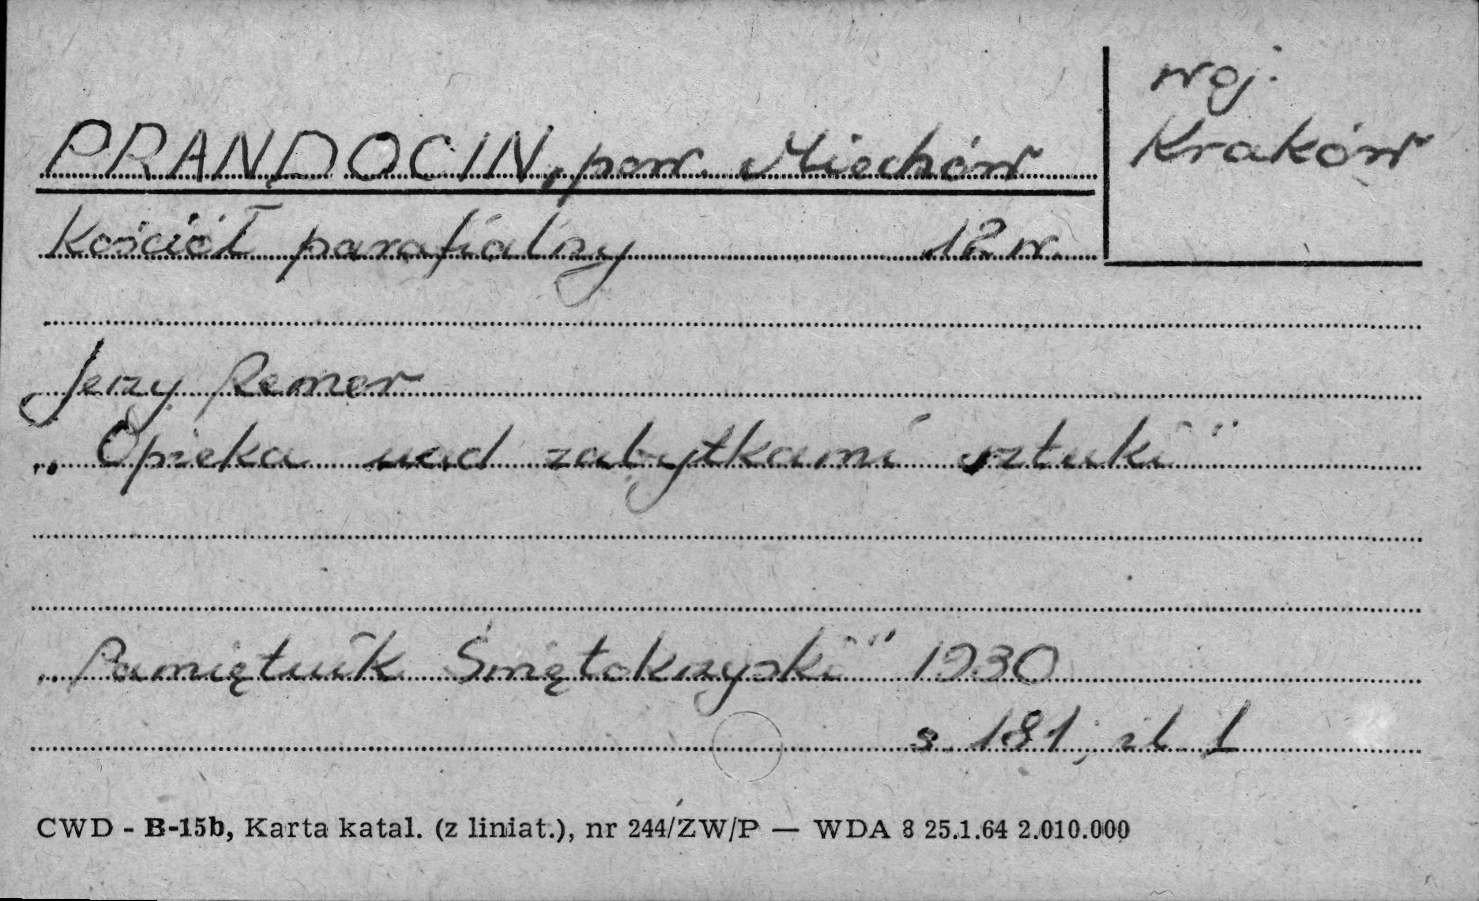 woj.
Kraków
PRANDOCIN, pow. Miechów
Kościół parafialny 12 w.
Jerzy Remer
„Opieka nad zabytkami sztuki"
„Pamiętnik Świętokrzyski" 1930
s. 181, il. 1
CWD - B-15b, Karta katal. (z liniat.), nr 244/ZW/P — WDA 8 25.1.64 2.010.000